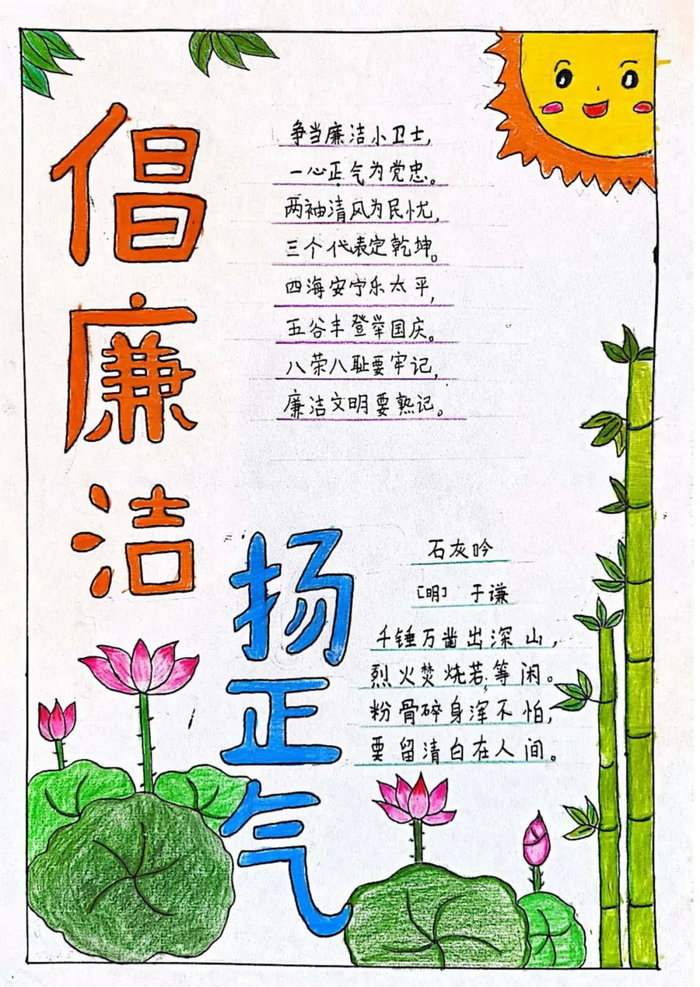 倡廉洁
扬正气
争当廉洁小卫士，
一心正气为党忠。
两袖清风为民忧，
三个代表定乾坤。
四海安宁乐太平，
五谷丰登举国庆。
八荣八耻要牢记，
廉洁文明要熟记。
石灰吟
［明］ 于谦
千锤万凿出深山，
烈火焚烧若等闲。
粉骨碎身浑不怕，
要留清白在人间。